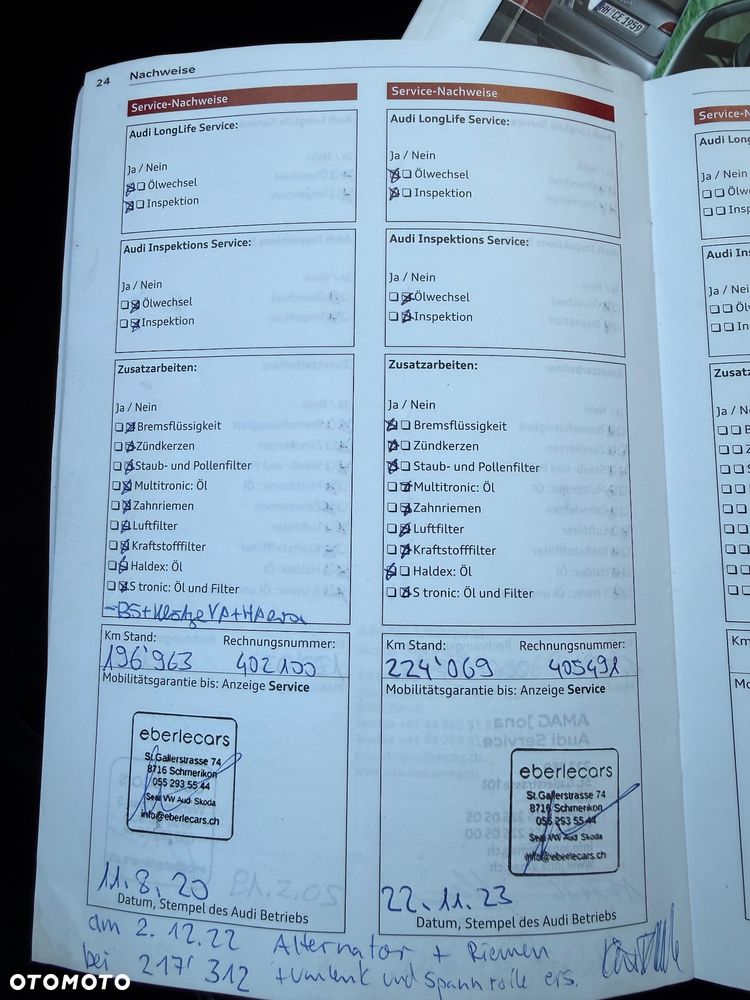 HH CE 1959
24 Nachweise
Service-Nachweise
Audi LongLife Service:
Ja / Nein
Ölwechsel
Inspektion
Audi Inspektions Service:
Ja / Nein
Ölwechsel
Inspektion
Zusatzarbeiten:
Ja / Nein
Bremsflüssigkeit
Zündkerzen
Staub- und Pollenfilter
Multitronic: Öl
Zahnriemen
Luftfilter
Kraftstofffilter
Haldex: Öl
S tronic: Öl und Filter
-BS+Klötze VA+HA
Km Stand: Rechnungsnummer:
196'963 402100
Mobilitätsgarantie bis: Anzeige Service
eberlecars
St.Gallerstrasse 74
8716 Schmerikon
055 293 55 44
Seat VW Audi Skoda
info@eberlecars.ch
11.8.20
Datum, Stempel des Audi Betriebs
Service-Nachweise
Audi LongLife Service:
Ja / Nein
Ölwechsel
Inspektion
Audi Inspektions Service:
Ja / Nein
Ölwechsel
Inspektion
Zusatzarbeiten:
Ja / Nein
Bremsflüssigkeit
Zündkerzen
Staub- und Pollenfilter
Multitronic: Öl
Zahnriemen
Luftfilter
Kraftstofffilter
Haldex: Öl
S tronic: Öl und Filter
Km Stand: Rechnungsnummer:
224'069 405491
Mobilitätsgarantie bis: Anzeige Service
eberlecars
St.Gallerstrasse 74
8716 Schmerikon
055 293 55 44
Seat VW Audi Skoda
info@eberlecars.ch
22.11.23
Datum, Stempel des Audi Betriebs
am 2.12.22 Alternator + Riemen
bei 217'312 + Umlenk und Spannrolle ers.
Service-N
Audi Long
Ja / Nein
Ölw
Insp
Audi Ins
Ja / Nei
Öl
In
Zusatz
Ja / N
B
Z
Km
Mo
OTOMOTO